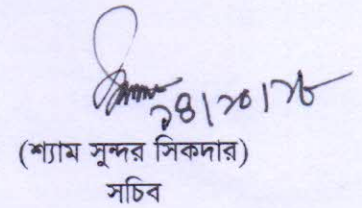 ১৪/১০/১৮
(শ্যাম সুন্দর সিকদার)
সচিব